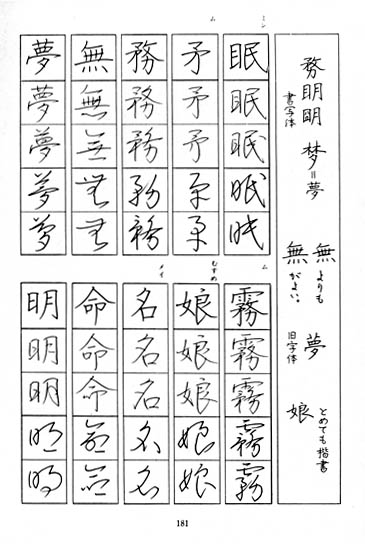 務明明 梦=夢
書写体
無よりも
無がよい。
夢
旧字体
娘 とめても楷書
ミン
眠眠眠眠眠
ム
矛矛矛矛矛
務務務務務
無無無無無
夢夢夢夢夢
ム
霧霧霧霧霧
むすめ
娘娘娘娘娘
メイ
名名名名名
命命命命命
明明明明明
181